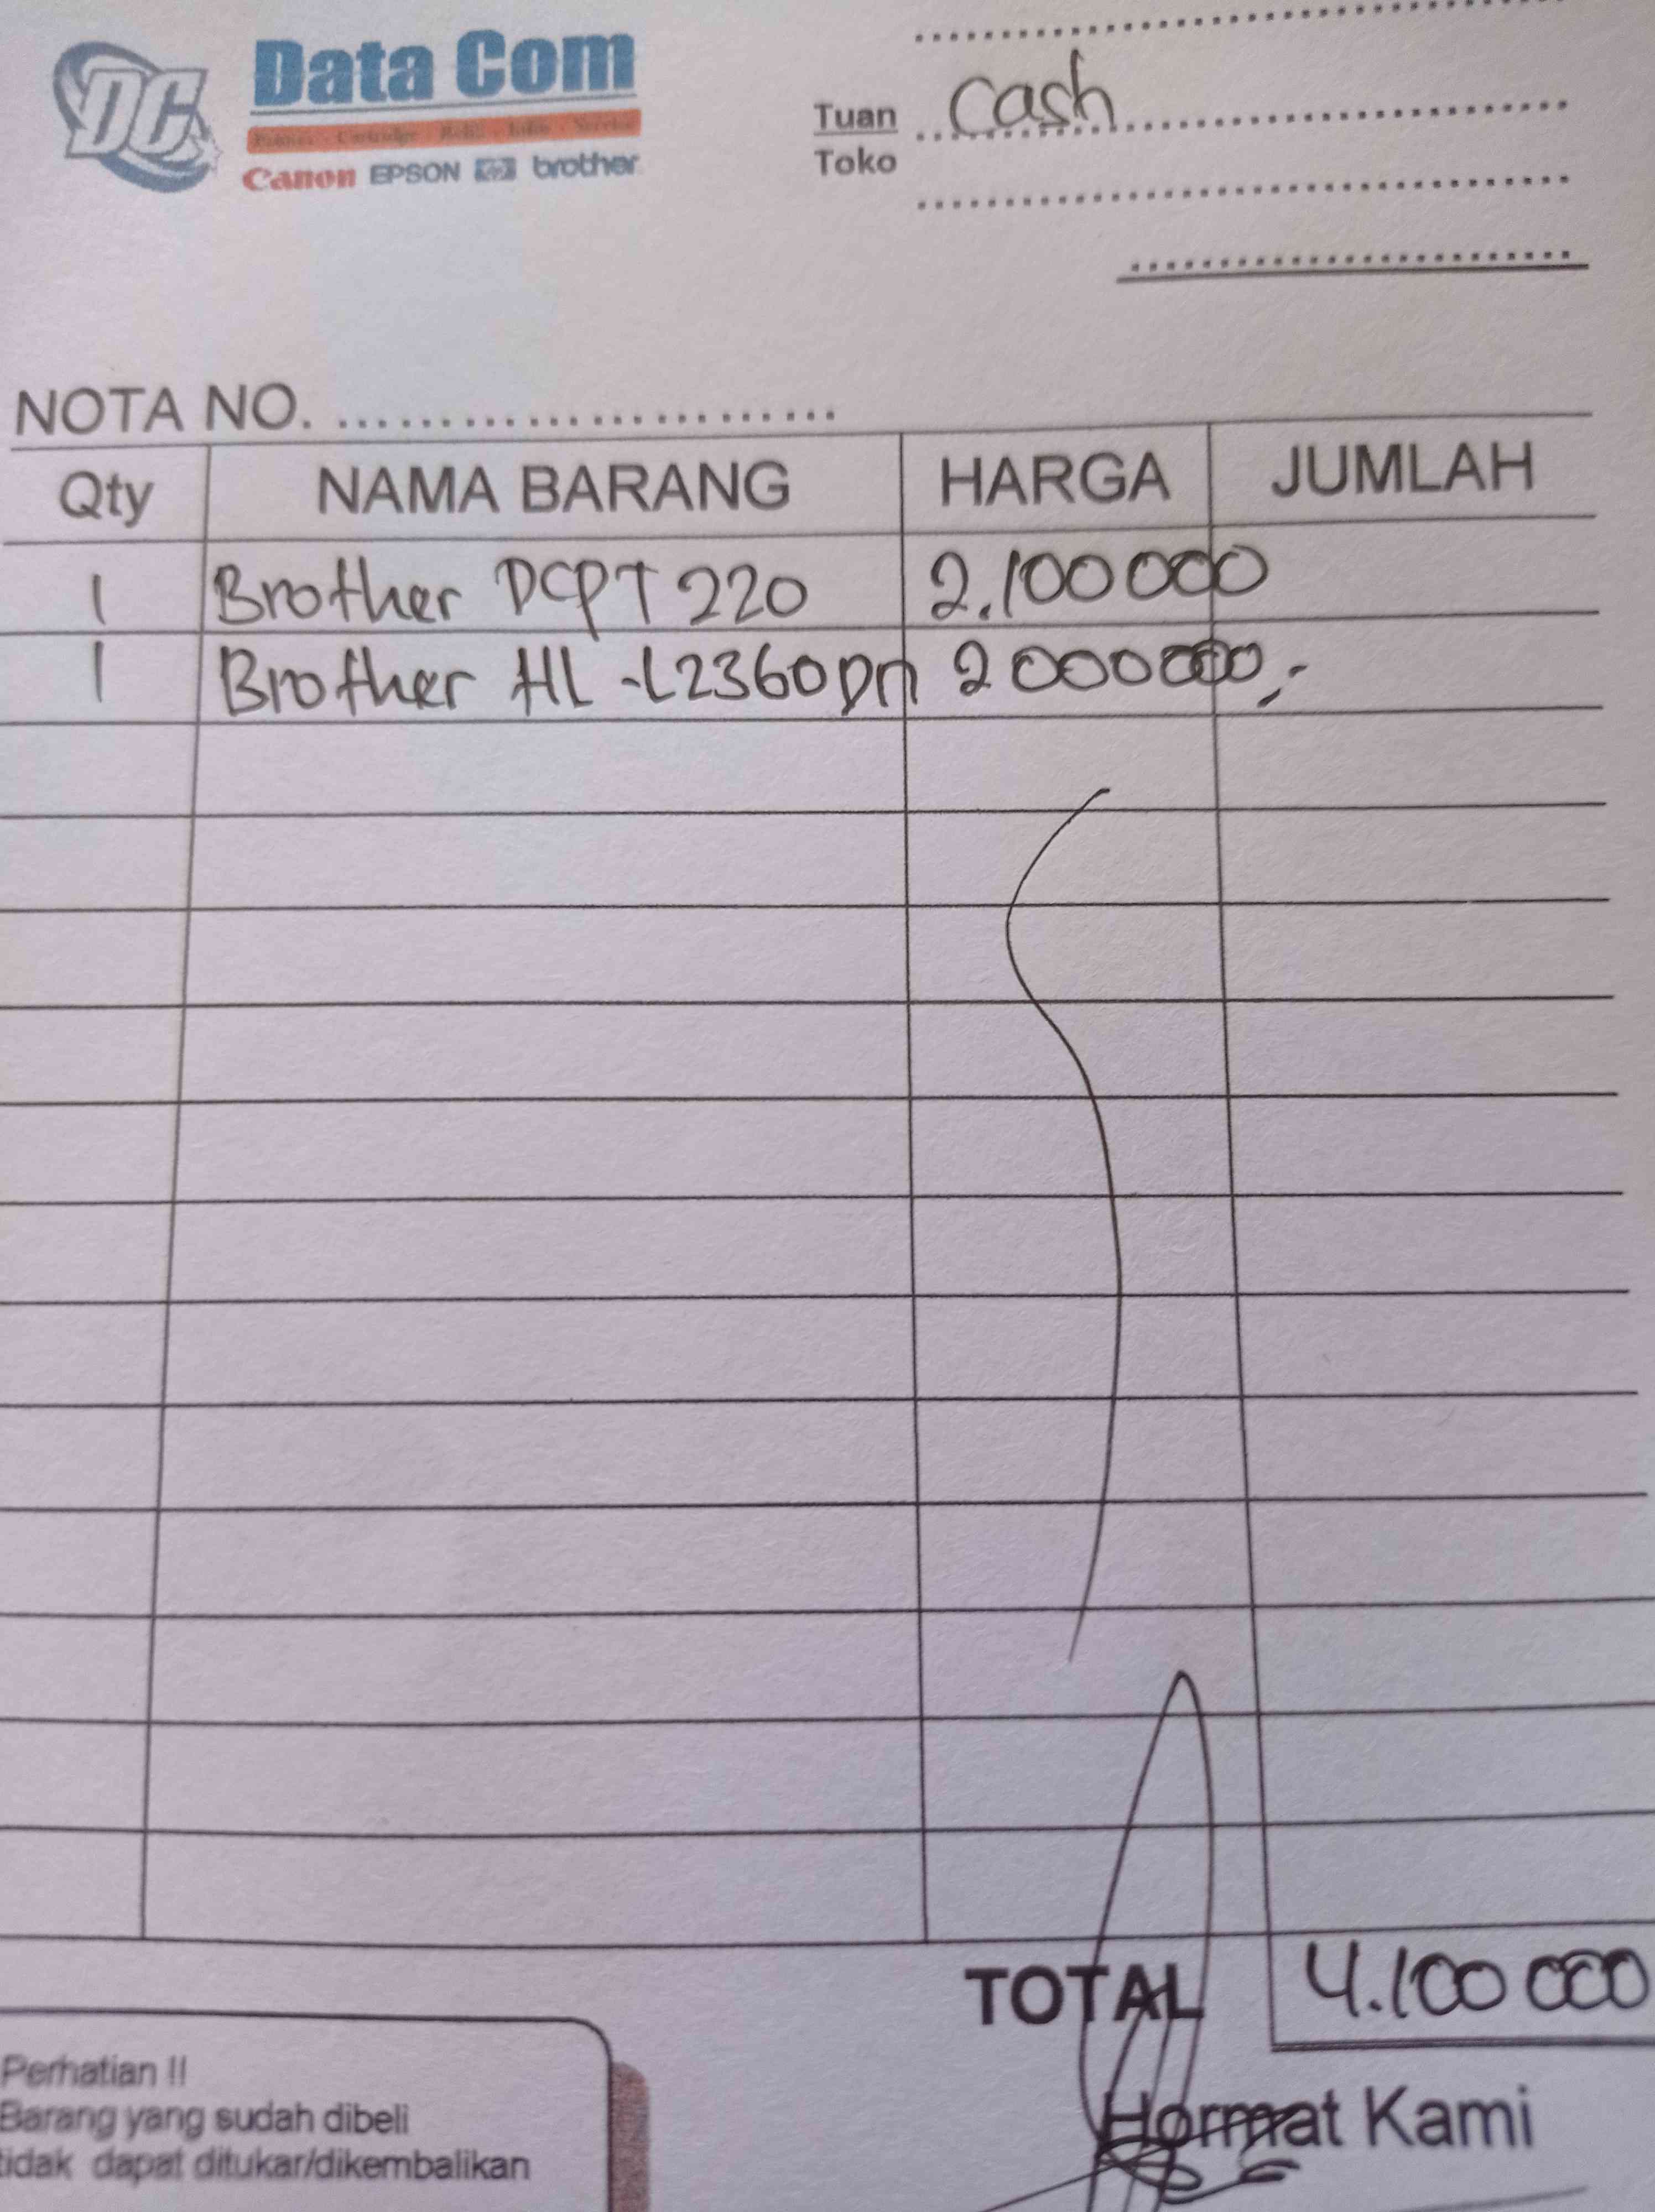 DC
Data Com
Printer - Cartridge - Refill - Infus - Service
Canon EPSON hp brother
Tuan cash
Toko
NOTA NO. ........................
Qty NAMA BARANG HARGA JUMLAH
1 Brother DCPT 220 2.100 000
1 Brother HL -L2360Dn 2 000 000,-
TOTAL 4.100 000
Perhatian !!
Barang yang sudah dibeli
tidak dapat ditukar/dikembalikan
Hormat Kami